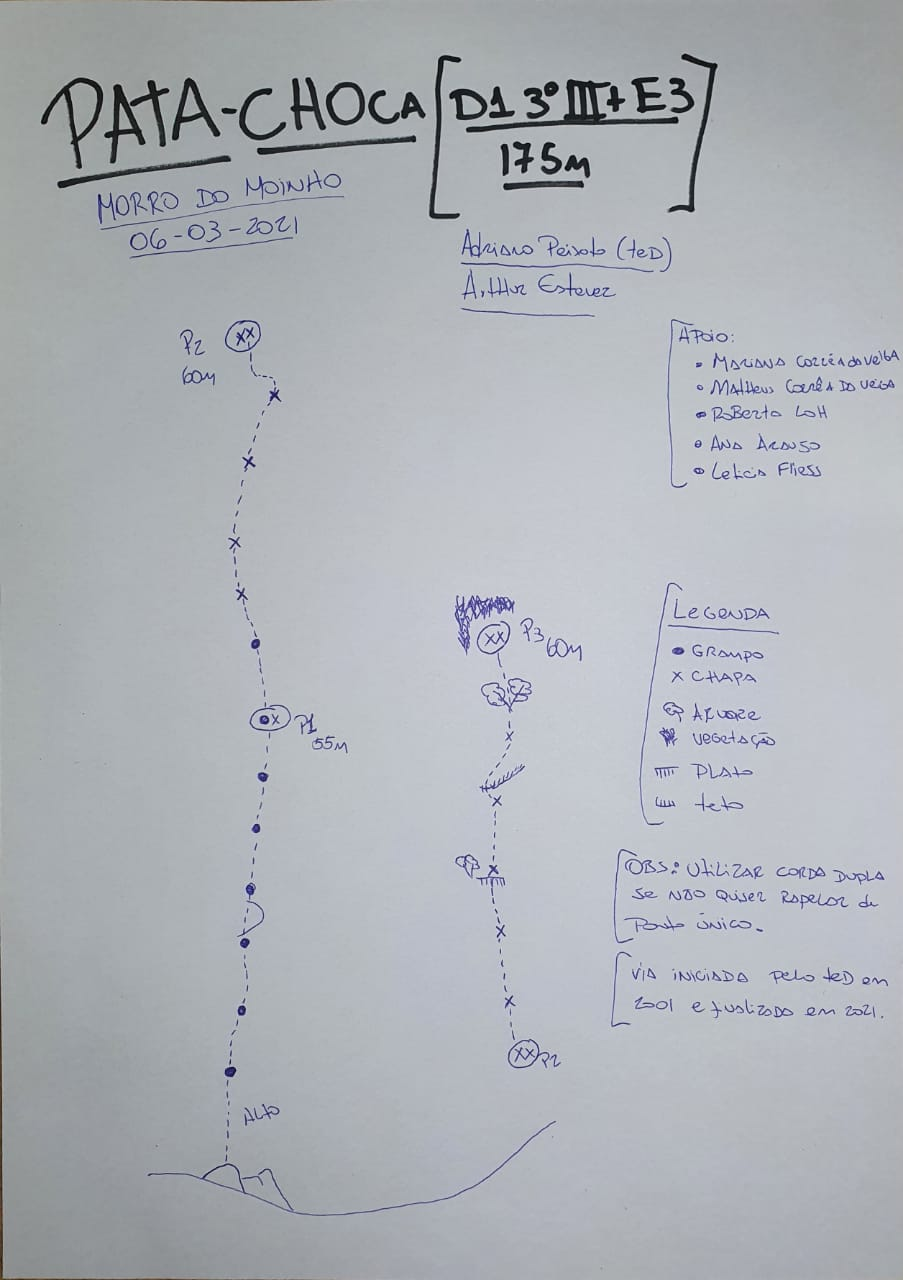 PATA-CHOCA [D1 3º III+ E3
175M]
MORRO DO MOINHO
06-03-2021
Adriano Peixoto (teD)
Arthur Estevez
P2 XX
60m
APOIO:
• MARIANA CORRÊA do VEIGA
• Matheus CORRÊA DO VEIGA
• RoBerto LOH
• ANA ARAUJO
• Leticia Fliess
P3
XX 60m
LeGENDA
• GRAMPO
X CHAPA
ÁRVORE
VEGETAÇÃO
PLATO
teto
X P1
55M
OBS: Utilizar CORDA DUPLA
Se NÃO QUISER RAPELAR de
Ponto Único.
VIA INICIADA pelo teD em
2001 e finalizado em 2021.
XX P2
ALTO